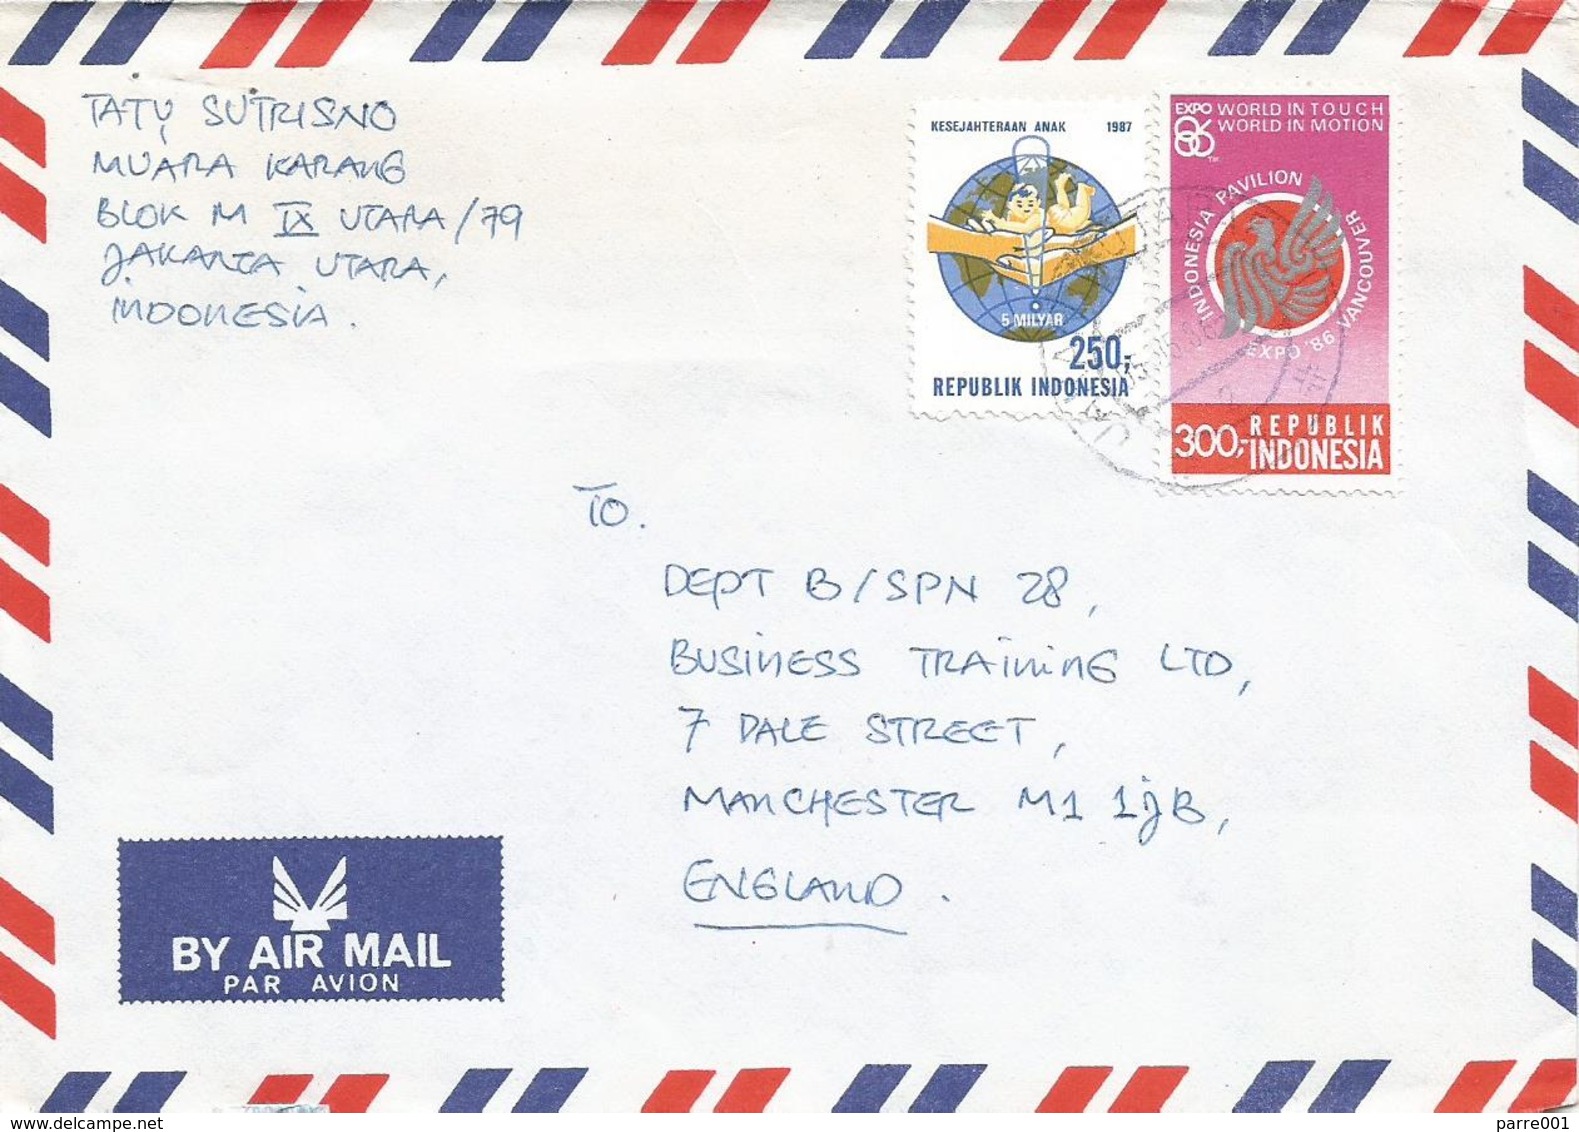 TATY SUTRISNO
MUARA KARANG
BLOK M IX UTARA/79
JAKARTA UTARA,
INDONESIA.
KESEJAHTERAAN ANAK 1987
5 MILYAR
250,-
REPUBLIK INDONESIA
EXPO 86 WORLD IN TOUCH
WORLD IN MOTION
TM
INDONESIA PAVILION
EXPO '86 VANCOUVER
300,- REPUBLIK
INDONESIA
TO.
DEPT B/SPN 28,
BUSINESS TRAINING LTD,
7 DALE STREET,
MANCHESTER M1 1JB,
ENGLAND.
BY AIR MAIL
PAR AVION
delcampe.net
parre001